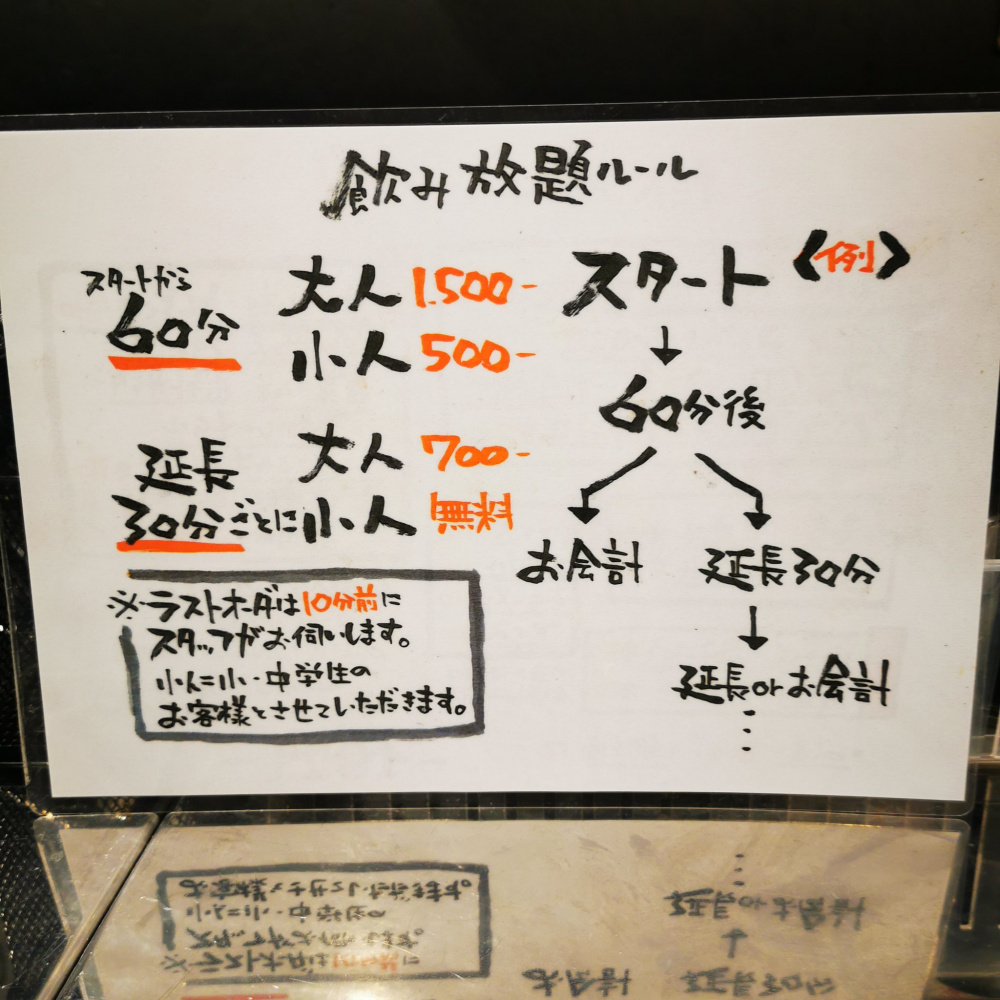 飲み放題ルール
スタートから
60分
大人 1.500-
小人 500-
延長
30分ごとに
大人 700-
小人 無料
※ラストオーダは10分前に
スタッフがお伺いします。
小人=小・中学生の
お客様とさせていただきます。
〈例〉
スタート
↓
60分後
お会計
延長30分
↓
延長orお会計
⋮